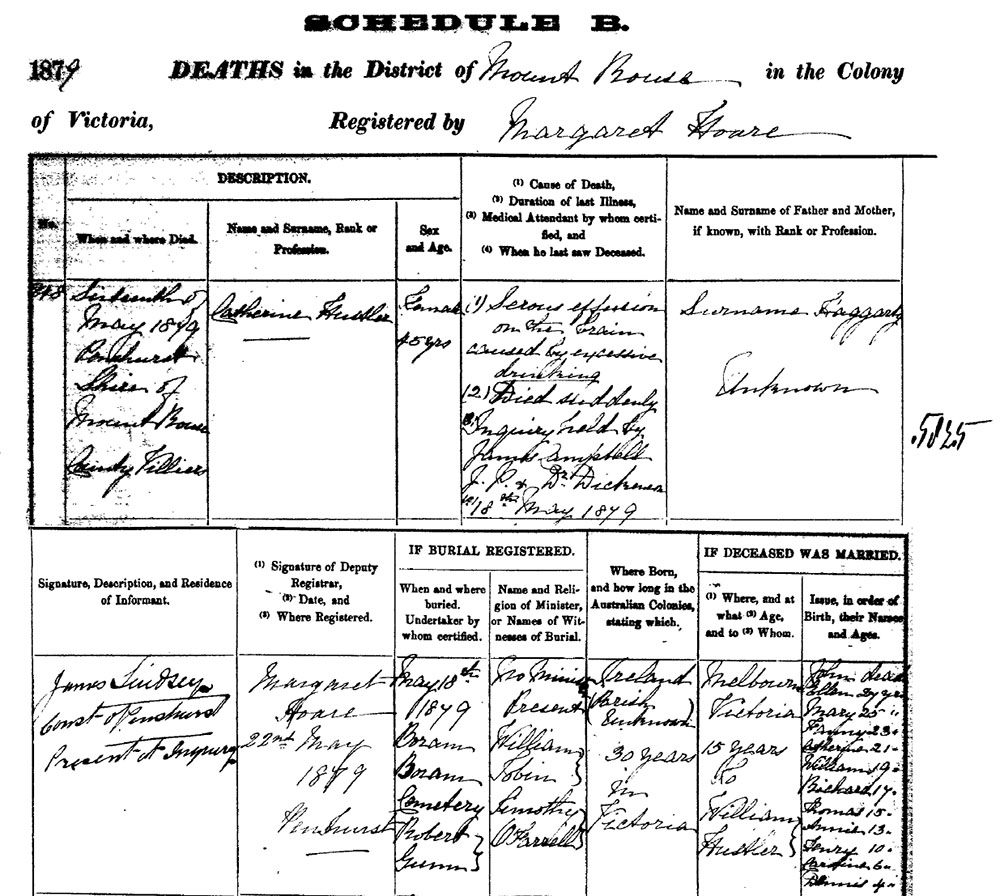 SCHEDULE B.
1879 DEATHS in the District of Mount Rouse in the Colony
of Victoria, Registered by Margaret Hoare
DESCRIPTION.
No.
When and where Died.
Name and Surname, Rank or
Profession.
Sex
and Age.
(1) Cause of Death,
(2) Duration of last Illness,
(3) Medical Attendant by whom certi-
fied, and
(4) When he last saw Deceased.
Name and Surname of Father and Mother,
if known, with Rank or Profession.
Sixteenth of
May 1879
Penshurst
Shire of
Mount Rouse
County Villiers
Catherine Hustler
Female
45 yrs
(1) Serous effusion
on the brain
caused by excessive
drinking
(2) Died suddenly
(3) Inquiry held by
James Campbell
J. P. & Dr. Dickenson
(4) 18th May 1879
Surname Faggarty
Unknown
5825
Signature, Description, and Residence
of Informant.
(1) Signature of Deputy
Registrar,
(2) Date, and
(3) Where Registered.
IF BURIAL REGISTERED.
When and where
buried.
Undertaker by
whom certified.
Name and Reli-
gion of Minister,
or Names of Wit-
nesses of Burial.
Where Born,
and how long in the
Australian Colonies,
stating which.
IF DECEASED WAS MARRIED.
(1) Where, and at
what (2) Age,
and to (3) Whom.
Issue, in order of
Birth, their Names
and Ages.
James Lindsey
Const of Penshurst
Present at Inquiry
Margaret
Hoare
22nd May
1879
Penshurst
May 18th
1879
Boram
Boram
Cemetery
Robert
Gunn
No Minister
Present
William
Tobin
Timothy
O'Farrell
Ireland
(Parish
Unknown)
30 years
in
Victoria
Melbourne
Victoria
15 years
To
William
Hustler
John dead
Ellen 27 yrs
Mary 25 "
Fanny 23 "
Catherine 21 "
William 19 "
Richard 17 "
Thomas 15 "
Annie 13 "
Henry 10 "
Caroline 6 "
Dennis 4 "